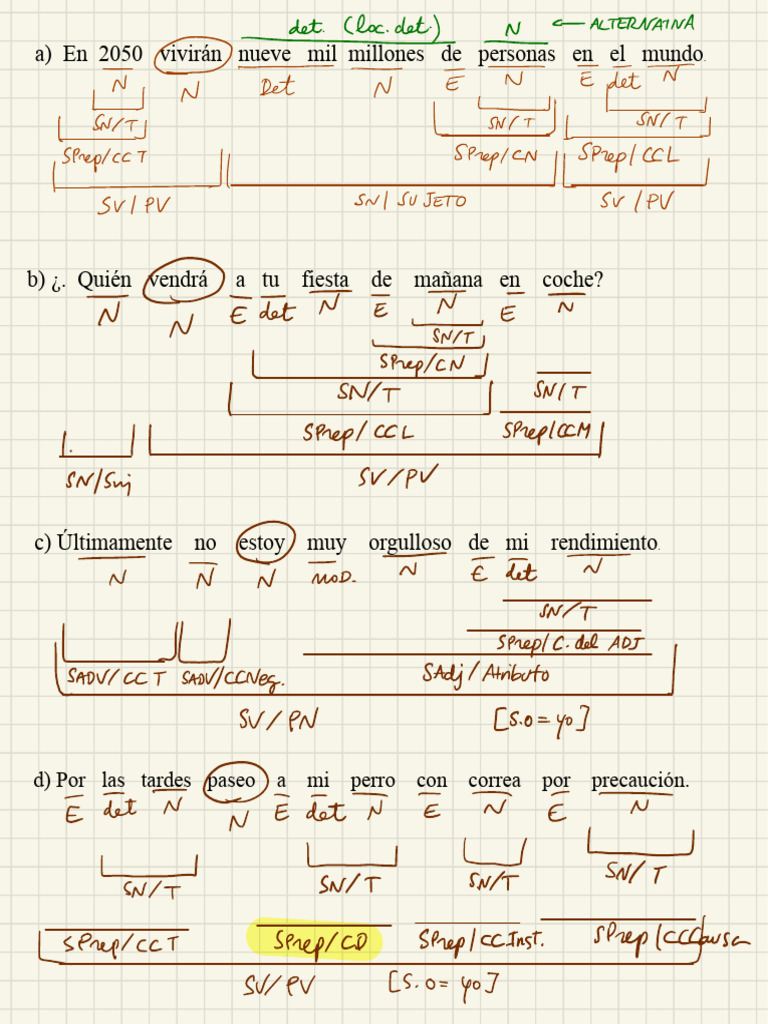 det. (loc. det.) N ← ALTERNATIVA
a) En 2050 vivirán nueve mil millones de personas en el mundo.
N N Det N E N E det N
SN/T SN/T SN/T
SPrep/CCT SPrep/CN SPrep/CCL
SV/PV SN/SUJETO SV/PV
b) ¿. Quién vendrá a tu fiesta de mañana en coche?
N N E det N E N E N
SN/T
SPrep/CN
SN/T SN/T
SPrep/CCL SPrep/CCM
SN/Suj SV/PV
c) Últimamente no estoy muy orgulloso de mi rendimiento.
N N N MOD. N E det N
SN/T
SPrep/C. del ADJ
SADV/CCT SADV/CCNeg. SAdj/Atributo
SV/PN [S.O = yo]
d) Por las tardes paseo a mi perro con correa por precaución.
E det N N E det N E N E N
SN/T SN/T SN/T SN/T
SPrep/CCT SPrep/CD SPrep/CC.Inst. SPrep/CCCausa
SV/PV [S.O = yo]